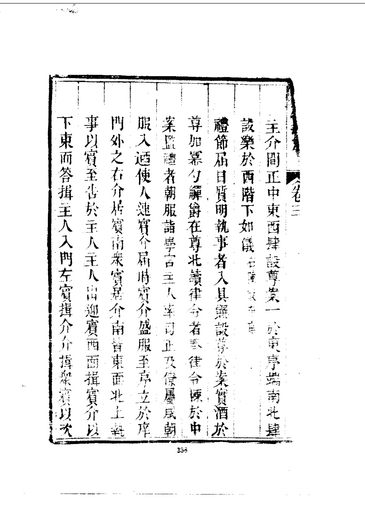 卷三
主介間正中東西肆設尊案一於東序端南北肆
設樂於西階下如儀
禮節屆日質明執事者入具饌設尊於案實酒於
尊加冪勺觶爵在尊北讀律令者奉律令陳於中
案監禮者朝服詣學宮主人率司正及僚屬咸朝
服入適使人速賓介屆時賓介盛服至序立於庠
門外之右介居賓南衆賓居介南皆東面北上執
事以賓至告於主人主人出迎賓西面揖賓介以
下東面答揖主人入門左賓揖介介揖衆賓以次
358